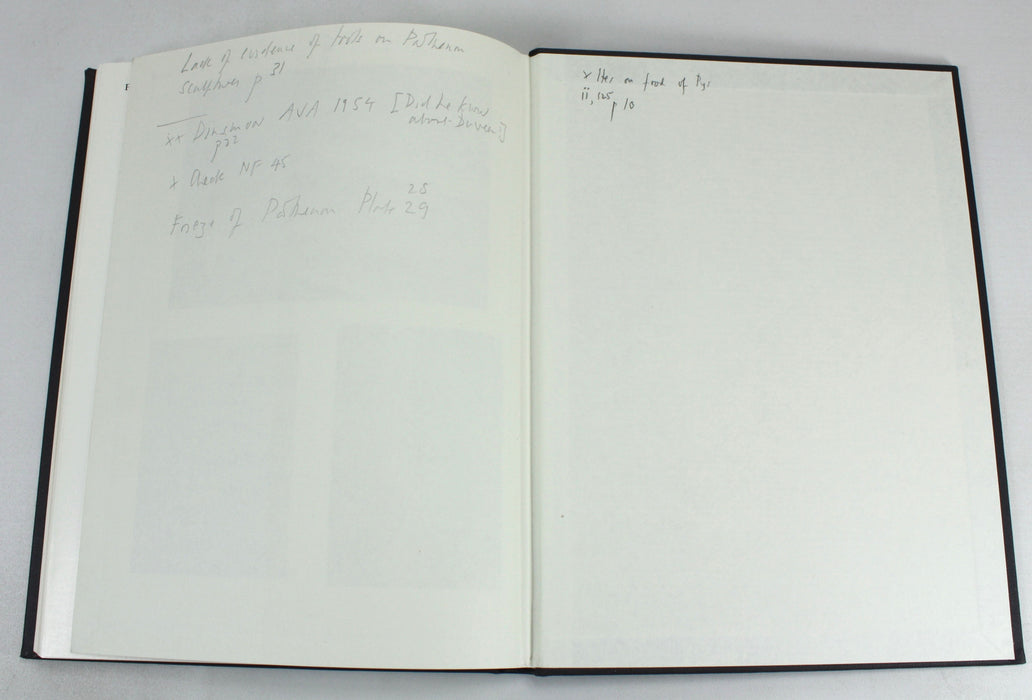 Lack of evidence of tools on Parthenon
sculptures p 31
xx Dinsmoor AJA 1954 [Did he know
about Duveen?]
p 22
x Check NF 45
Frieze of Parthenon Plate 28
29
x Her on food of Pyr
ii, 125
p 10